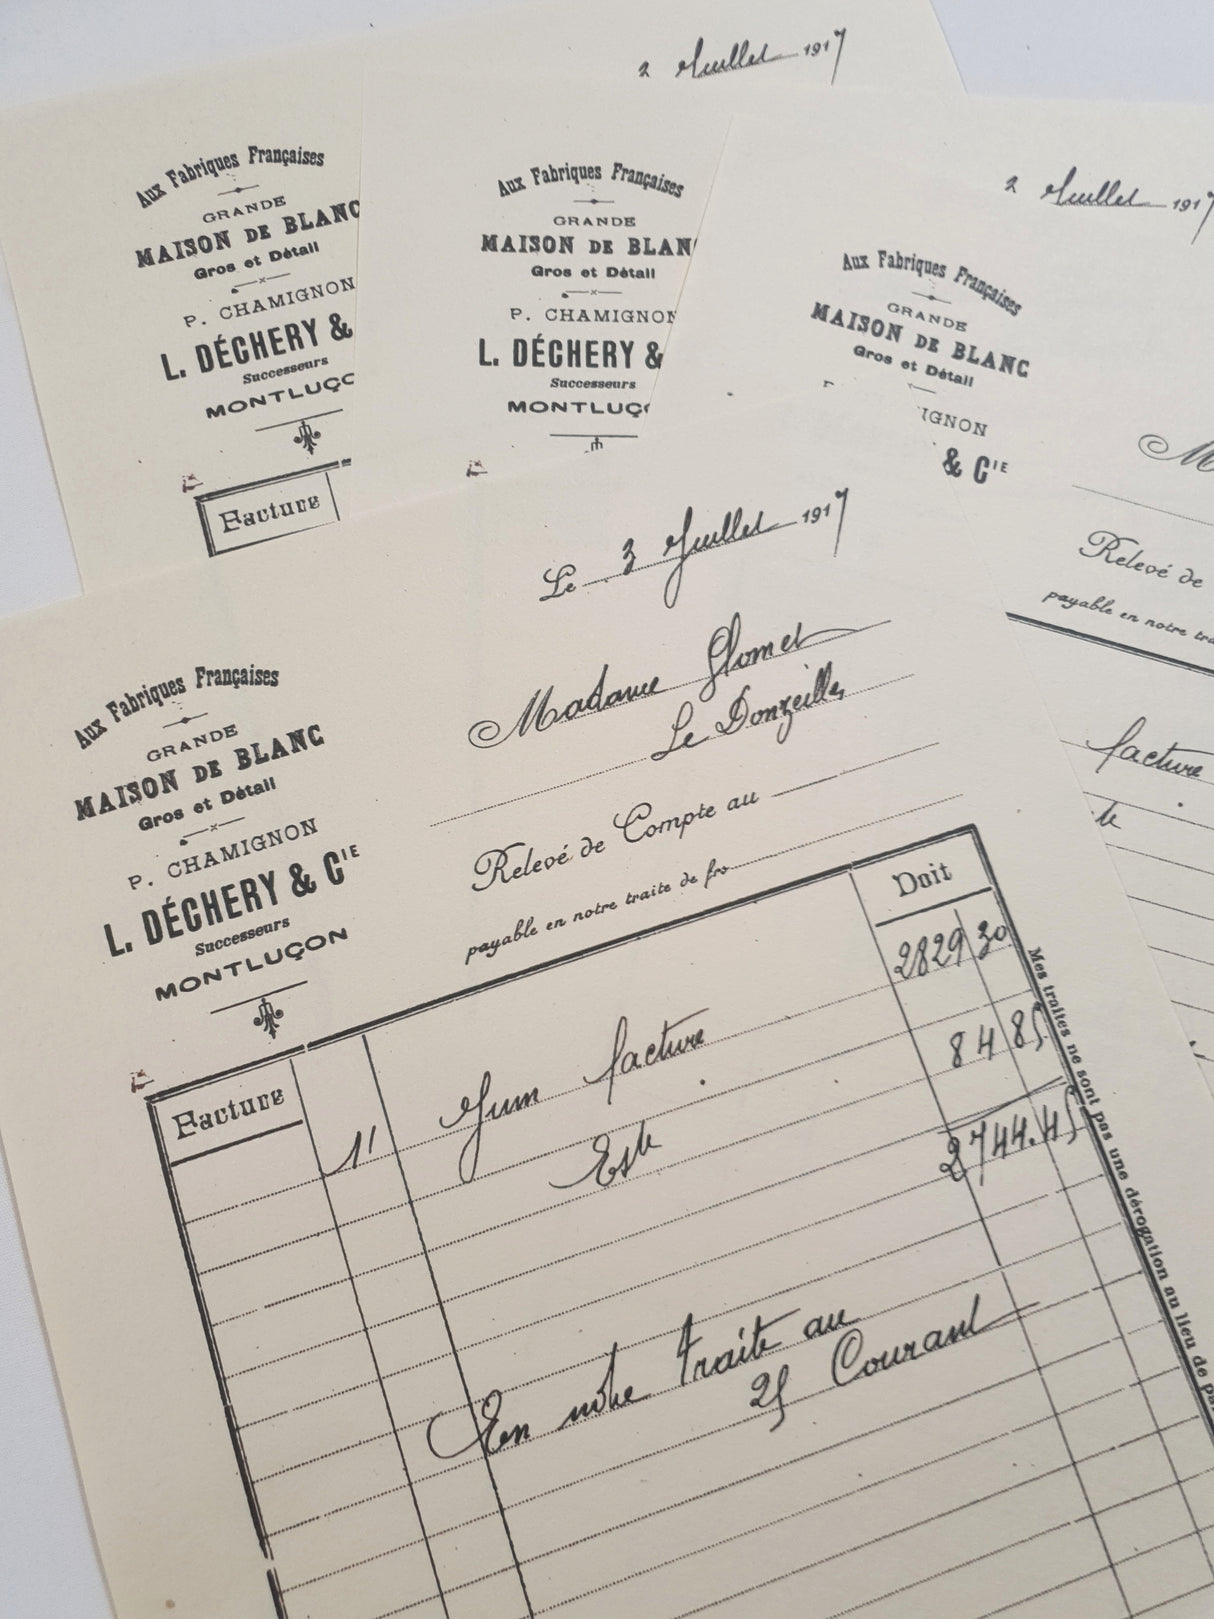 2 Juillet 1917
Aux Fabriques Françaises
GRANDE
MAISON DE BLANC
Gros et Détail
P. CHAMIGNON
L. DÉCHERY &
Successeurs
MONTLUÇO
Facture
Aux Fabriques Françaises
GRANDE
MAISON DE BLAN
Gros et Détail
P. CHAMIGNON
L. DÉCHERY &
Successeurs
MONTLUÇ
2 Juillet 1917
Aux Fabriques Françaises
GRANDE
MAISON DE BLANC
Gros et Détail
IGNON
& CIE
M
Relevé de
payable en notre tra
facture
Le 3 Juillet 1917
Madame Glomet
Le Donzeilles
Aux Fabriques Françaises
GRANDE
MAISON DE BLANC
Gros et Détail
P. CHAMIGNON
L. DÉCHERY & CIE
Successeurs
MONTLUÇON
Relevé de Compte au
payable en notre traite de frs
Facture
Doit
11 Juin facture 2829 30
Este 84 85
2744.45
En notre traite au
25 Courant
Mes traites ne sont pas une dérogation au lieu de pa